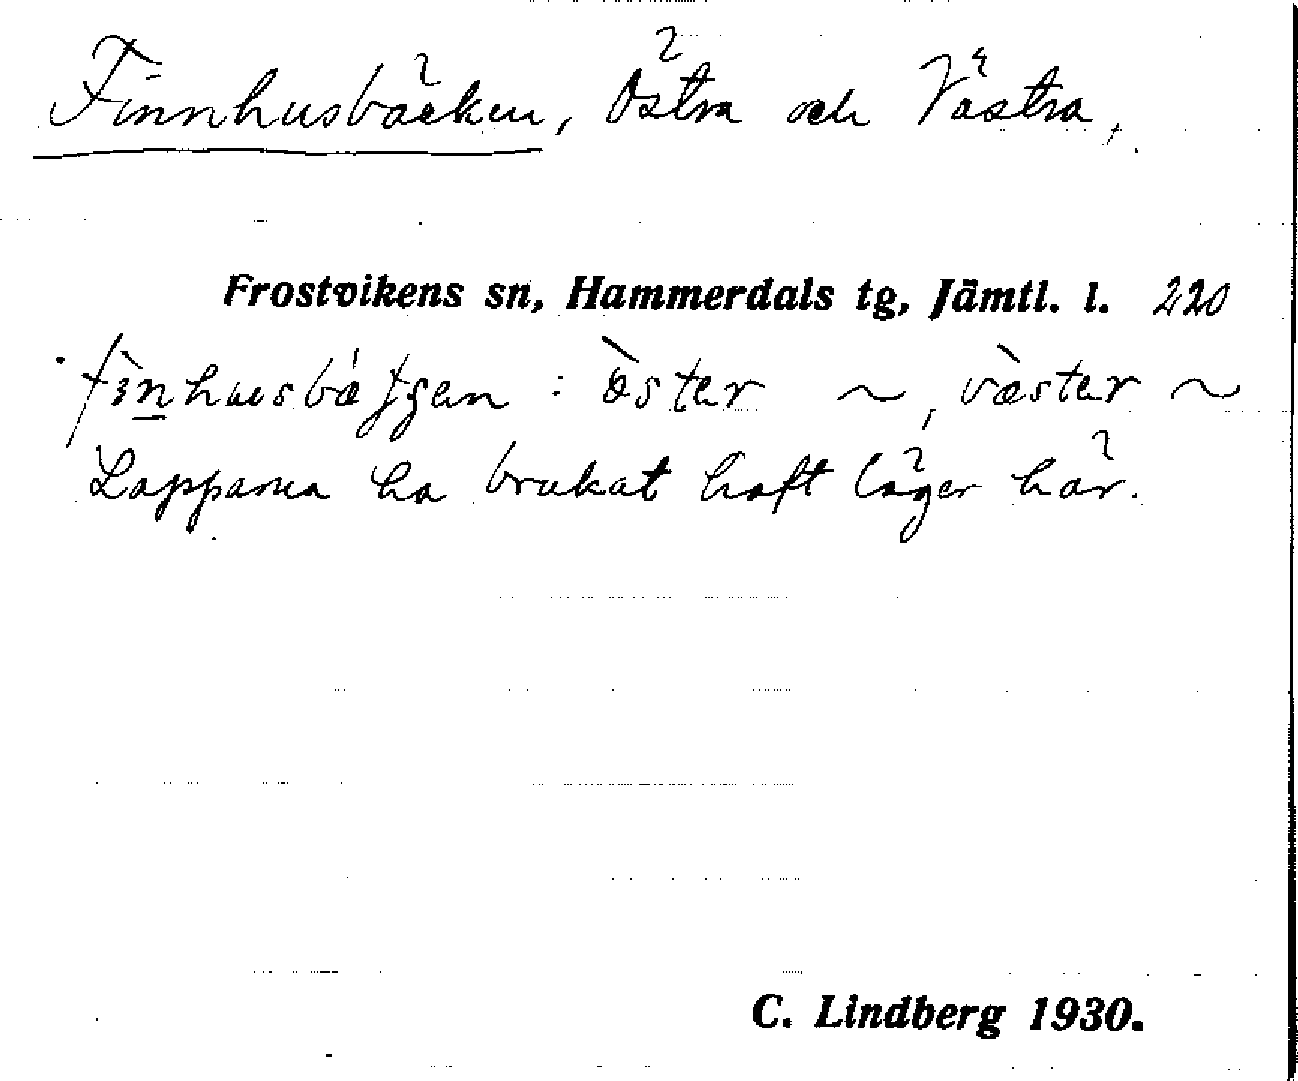 Finnhusbäcken, Östra och Västra,
Frostvikens sn, Hammerdals tg, Jämtl. l. 220
: öster ~, väster ~
Lapparna ha brukat haft läger här.
C. Lindberg 1930.